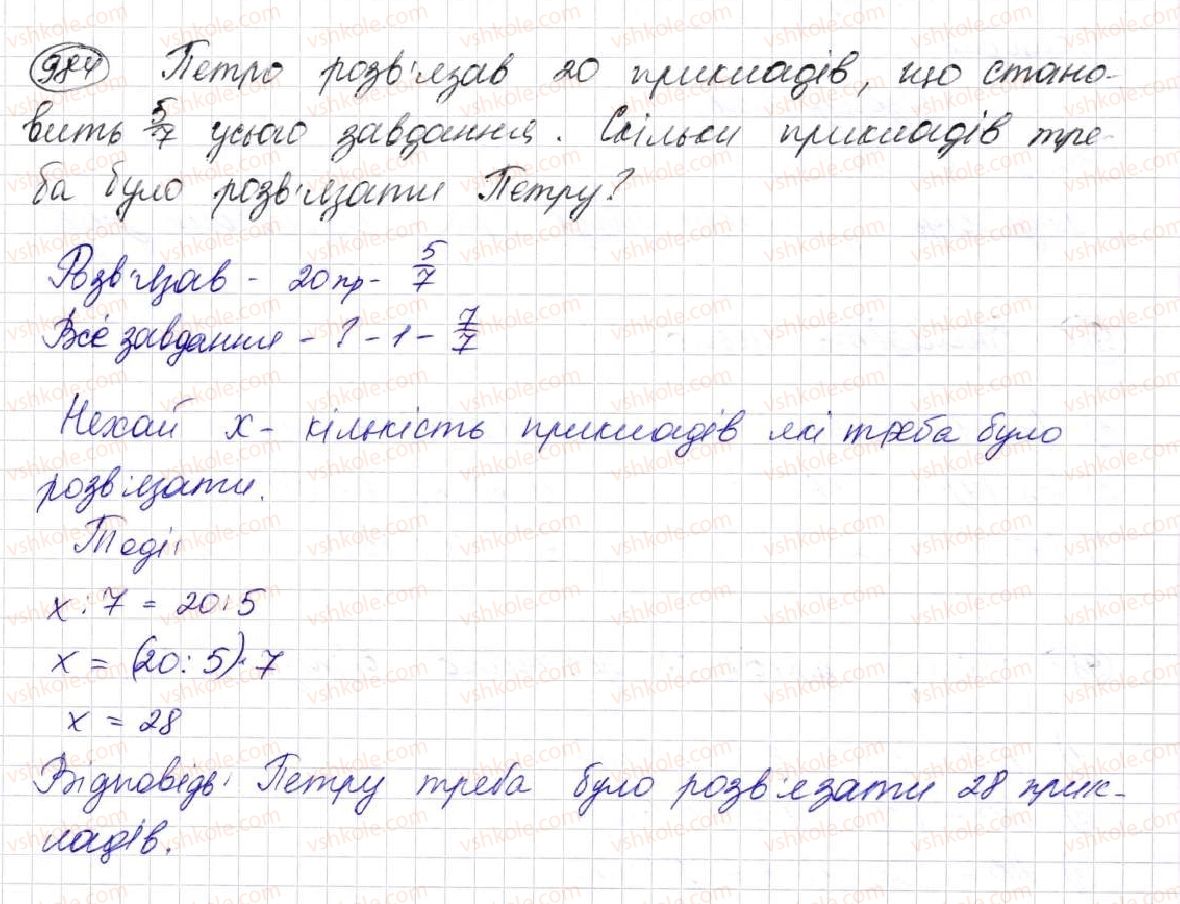 984 Петро розв'язав 20 прикладів, що стано-
вить 5/7 усього завдання. Скільки прикладів тре-
ба було розв'язати Петру?
Розв'язав - 20 пр - 5/7
Все завдання - ? - 1 - 7/7
Нехай x - кількість прикладів які треба було
розв'язати.
Тоді:
x : 7 = 20 : 5
x = (20 : 5) · 7
x = 28
Відповідь: Петру треба було розв'язати 28 прик-
ладів.